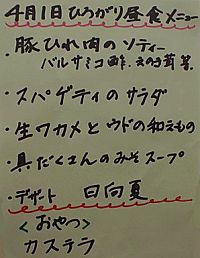 4月1日ひろがり昼食メニュー
・豚ひれ肉のソティー
バルサミコ酢、えのき茸 菜
・スパゲティのサラダ
・生ワカメとウドの和えもの
・具だくさんのみそスープ
・デザート 日向夏
<おやつ>
カステラ